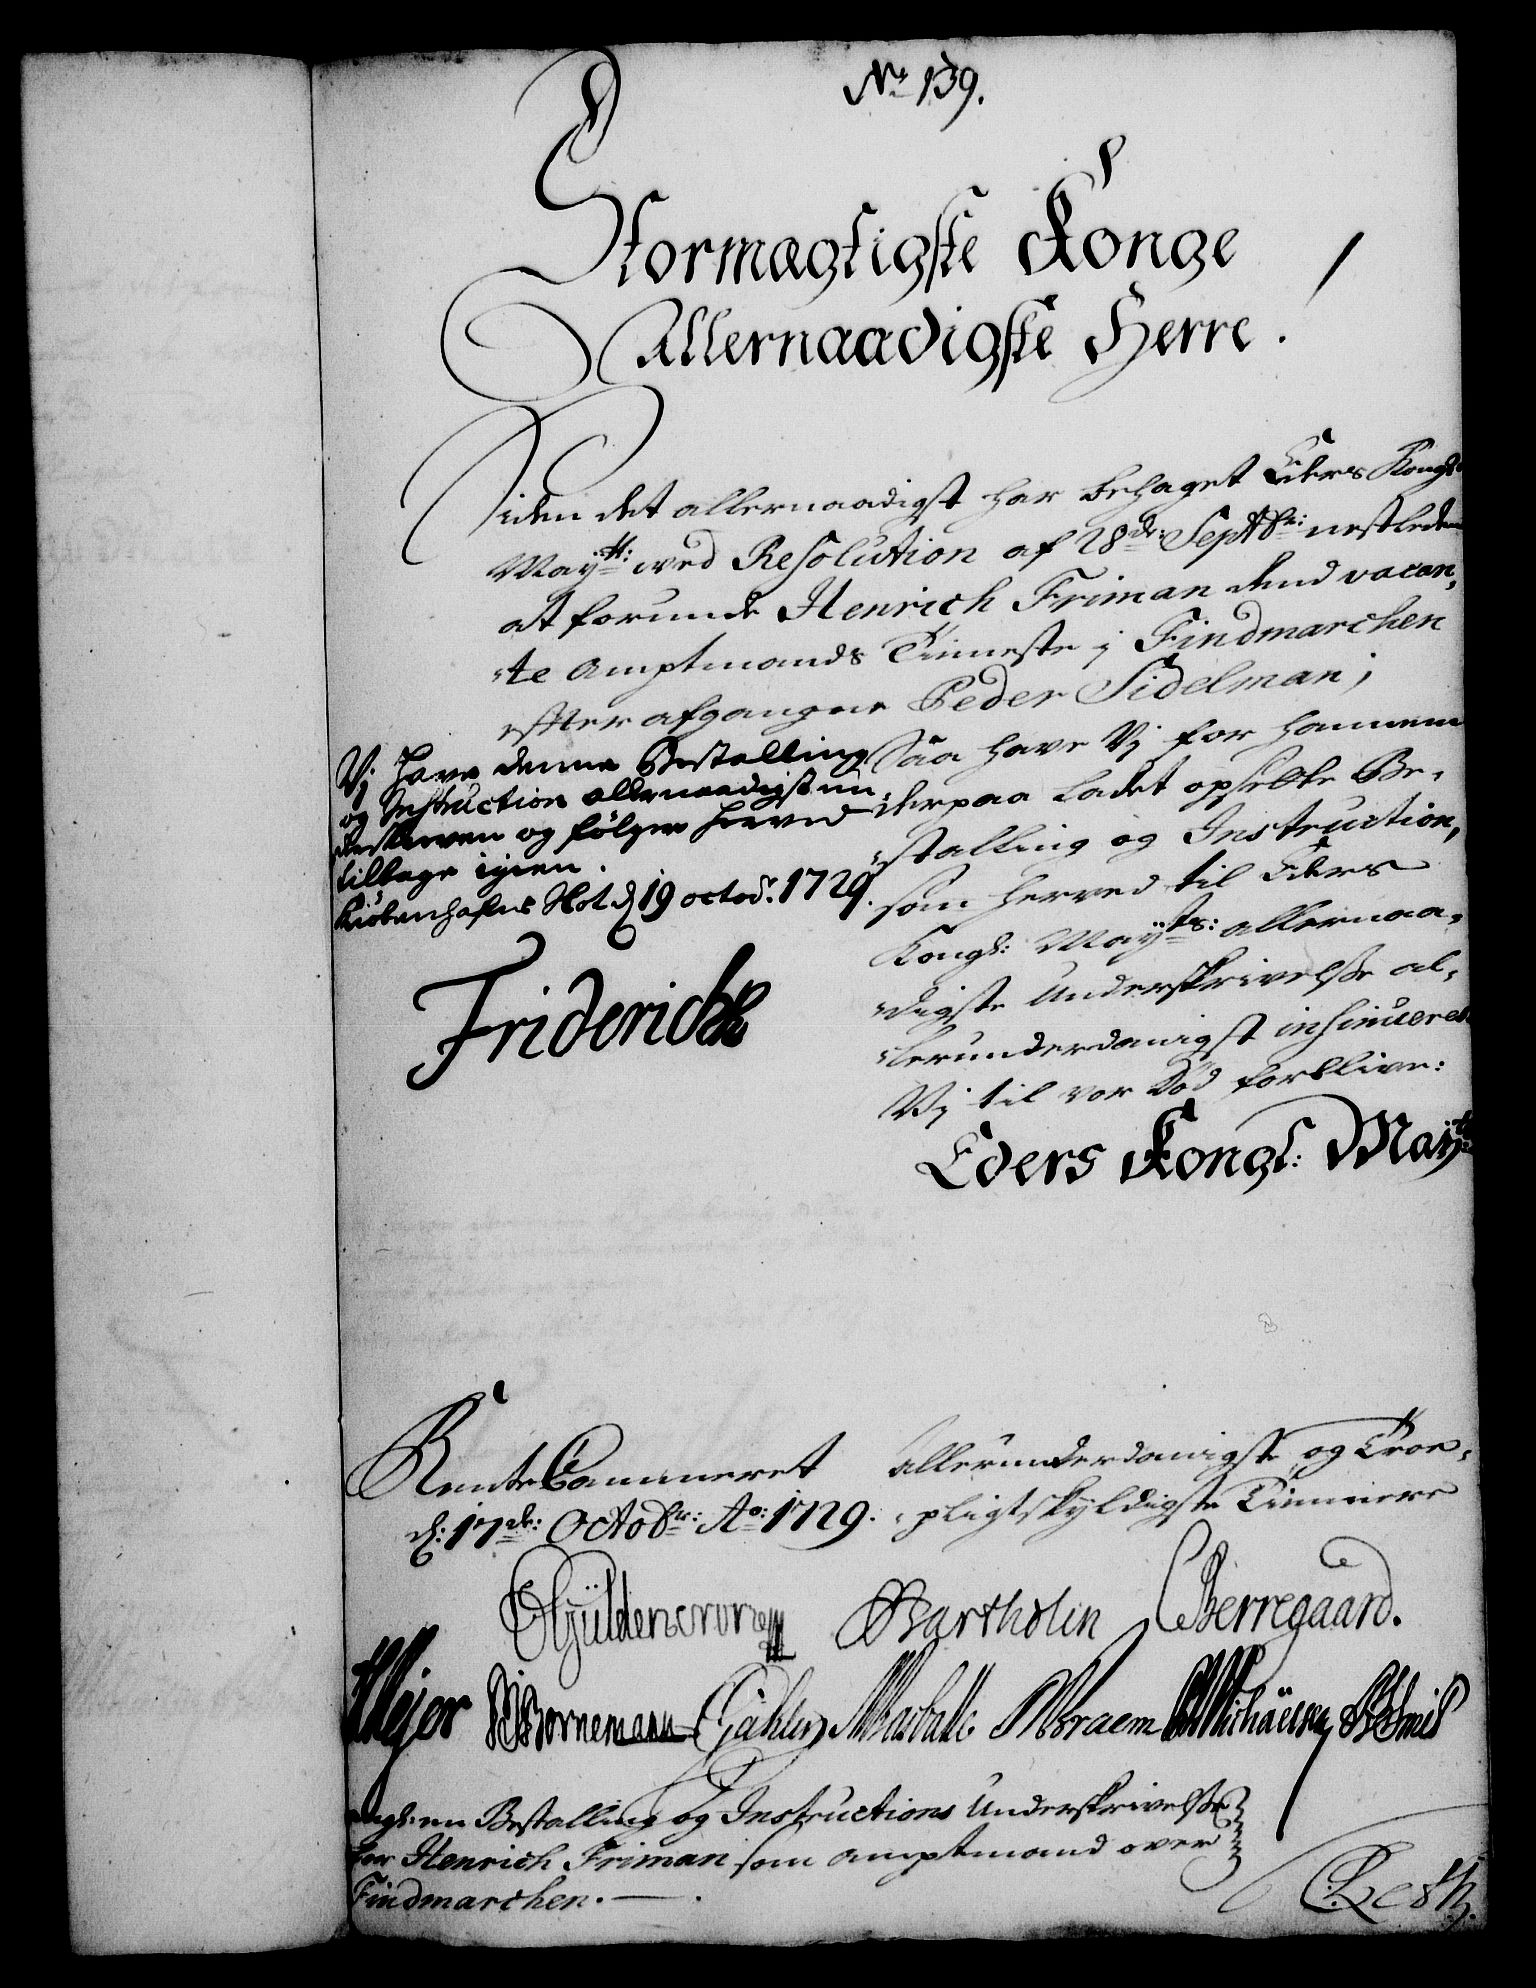 No 139.
Stormægtigste Konge
Allernaadigste Herre.
Siden det allernaadigst har behaget Eders Kongl:
Mayt: wed Resolution af 28de: Septbr: nestleden
at forunde Henrich Friman dend vacan„
„te Amptmands Tienneste i Findmarchen
effter afgangne Peder Sidelman;
Saa have Vj for hannem
derpaa ladet opsette Be„
„stalling og Instruction,
som herved til Eders
Kongl: Mayts: allernaa„
„digste Underskrivelsse al„
„lerunderdanigst insinueres
Vj til vor Død forblive:
Eders Kongl: Mayts
Vj have denne Bestalling
og Instruction allernaadigst un„
derskreven og følger herved
tilbage igien.
Kiøbenhafns Slot d 19 octobr. 1729.
Friderich
RenteCammeret
d: 17de: Octobr: Ao: 1729.
Allerunderdanigste og Troe„
„pligtskyldigste Tiennere
Güldencrone
Bartholin
CBerregaard.
Mejer Bornemann Gähler Braem Schmid
angl: en Bestalling og Instructions Underskrivelsse
for Henrich Friman som Amptmand over
Findmarchen.